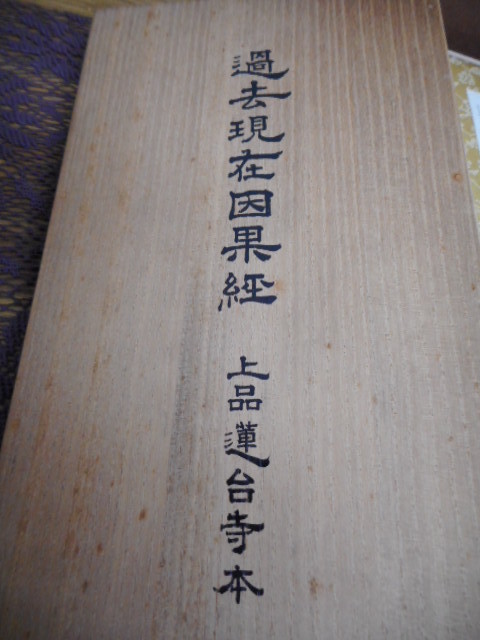 過去現在因果経 上品蓮台寺本